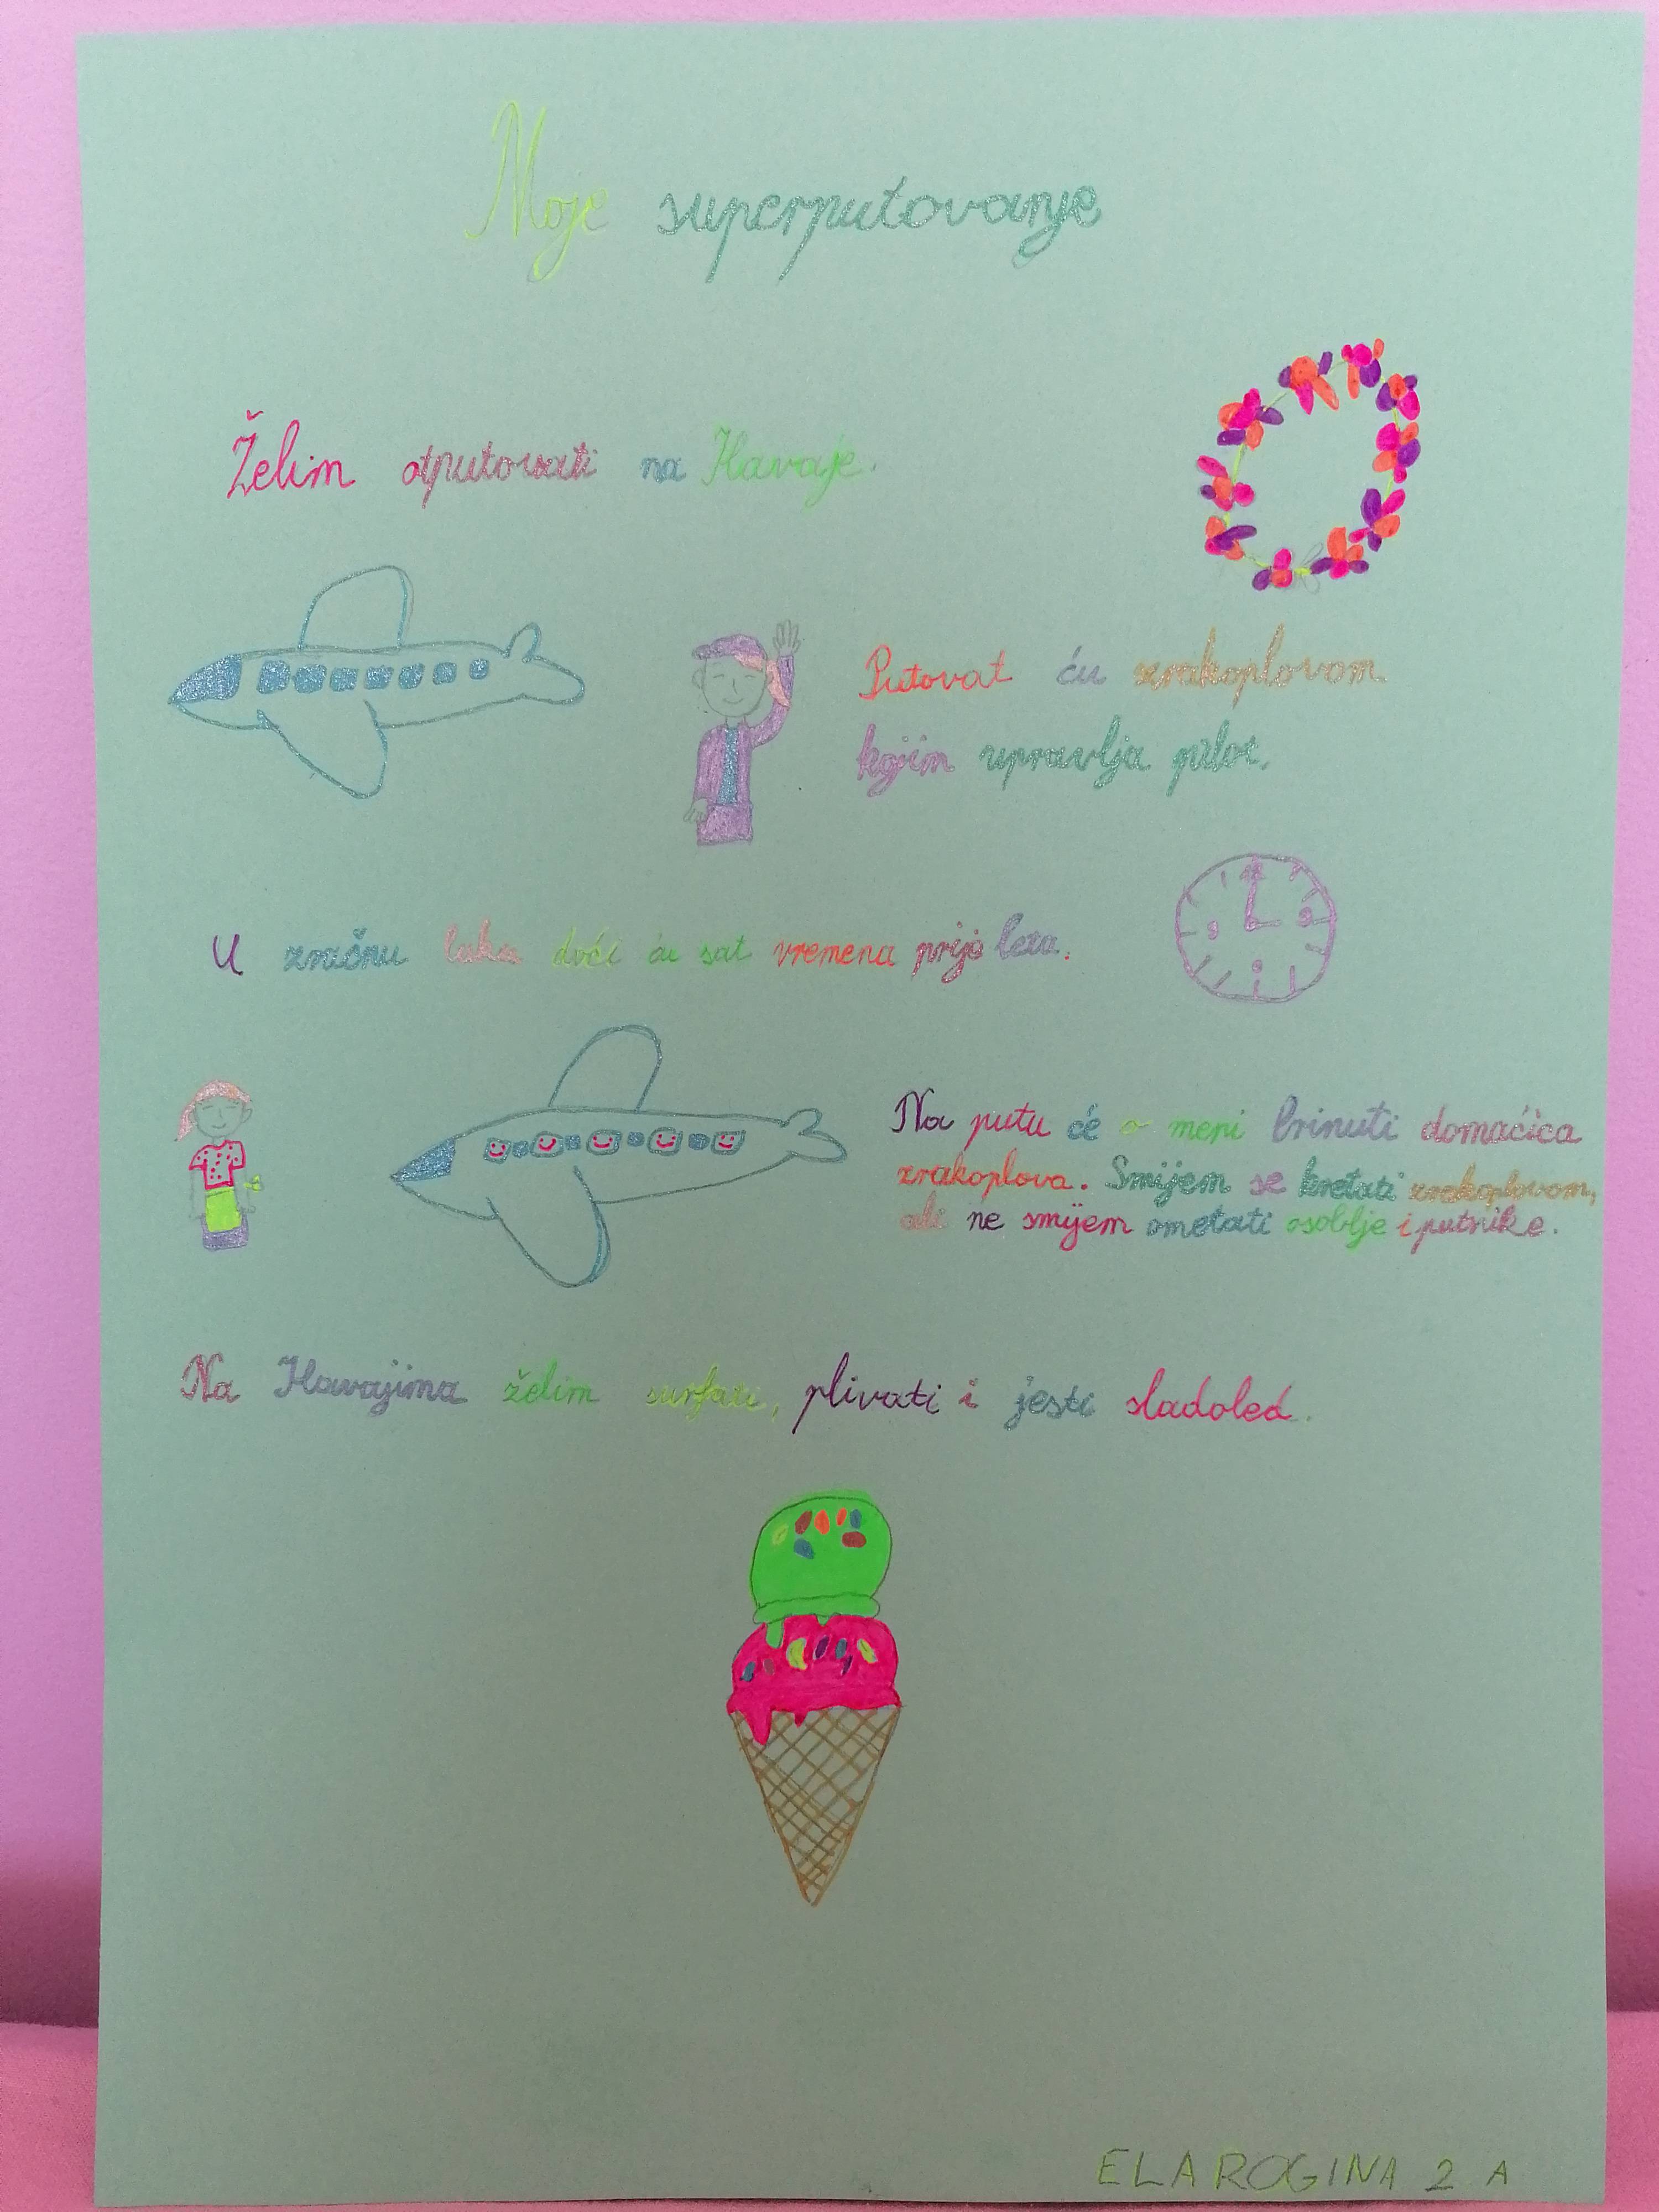 Moje superputovanje
Želim otputovati na Havaje.
Putovat ću zrakoplovom
kojim upravlja pilot.
U zračnu luku doći ću sat vremena prije leta.
12
3
6
9
Na putu će o meni brinuti domaćica
zrakoplova. Smijem se kretati zrakoplovom,
ali ne smijem ometati osoblje i putnike.
Na Havajima želim surfati, plivati i jesti sladoled.
ELA ROGINA 2 A